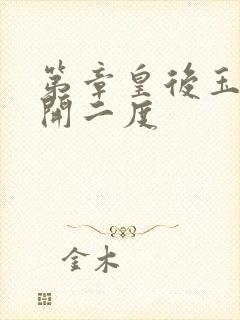 第章皇後玉
開二度
金木